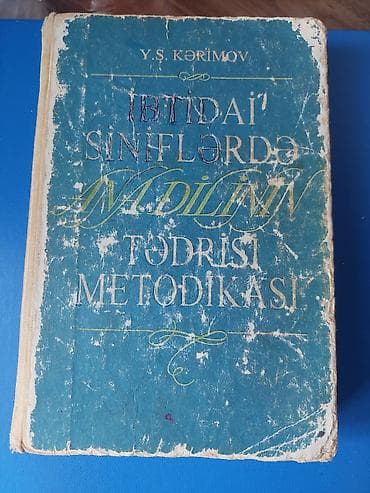 Y.Ş. KƏRİMOV
İBTİDAİ
SİNİFLƏRDƏ
ANA DİLİNİN
TƏDRİSİ
METODİKASI